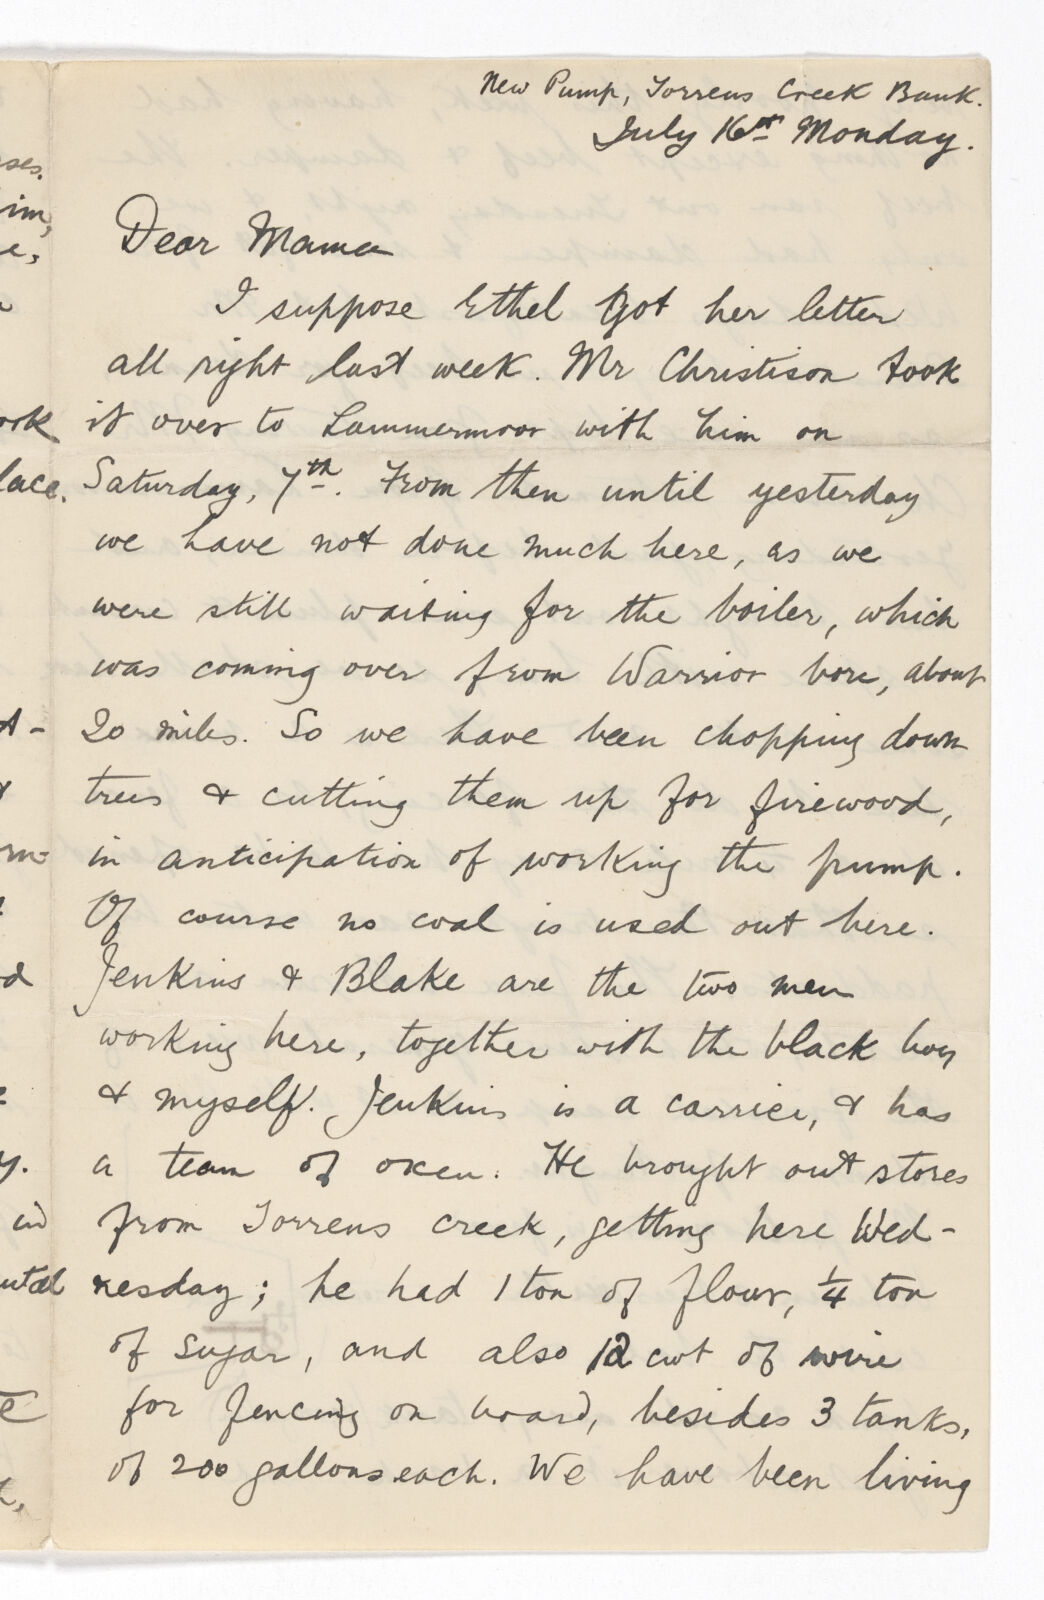 New Pump, Torrens Creek Bank.
July 16th Monday.
Dear Mama
I suppose Ethel got her letter
all right last week. Mr Christison took
it over to Lammermoor with him on
Saturday, 7th. From then until yesterday
we have not done much here, as we
were still waiting for the boiler, which
was coming over from Warrior bore, about
20 miles. So we have been chopping down
trees & cutting them up for firewood,
in anticipation of working the pump.
Of course no coal is used out here.
Jenkins & Blake are the two men
working here, together with the black boy
& myself. Jenkins is a carrier, & has
a team of oxen. He brought out stores
from Torrens creek, getting here Wed-
nesday; he had 1 ton of flour, 1/4 ton
of sugar, and also 12 cwt of wire
for fencing on board, besides 3 tanks,
of 200 gallons each. We have been living